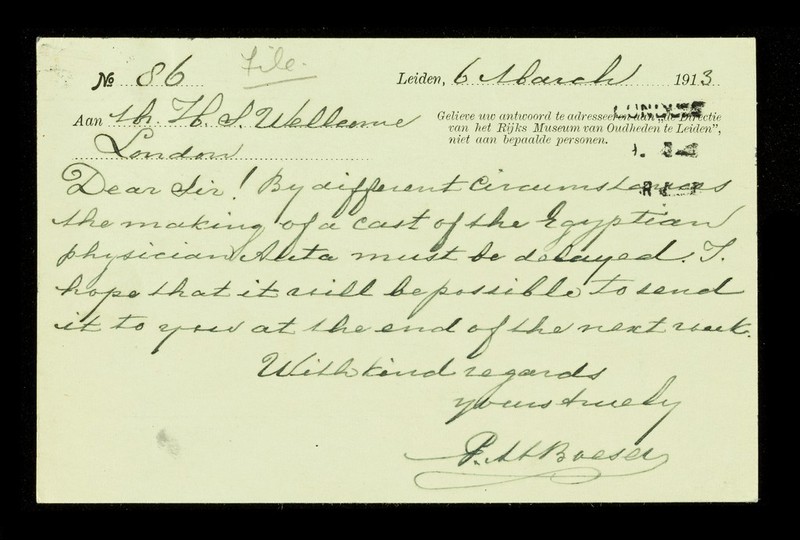 № 86 File.
Leiden, 6 March 1913
Aan Mr. H. S. Wellcome
London
Gelieve uw antwoord te adresseeren aan „de Directie
van het Rijks Museum van Oudheden te Leiden”,
niet aan bepaalde personen.
Dear Sir! By different circumstances
the making of a cast of the Egyptian
physician must be delayed. I
hope that it will be possible to send
it to you at the end of the next week.
With kind regards
yours truely
P. A. A. Boeser